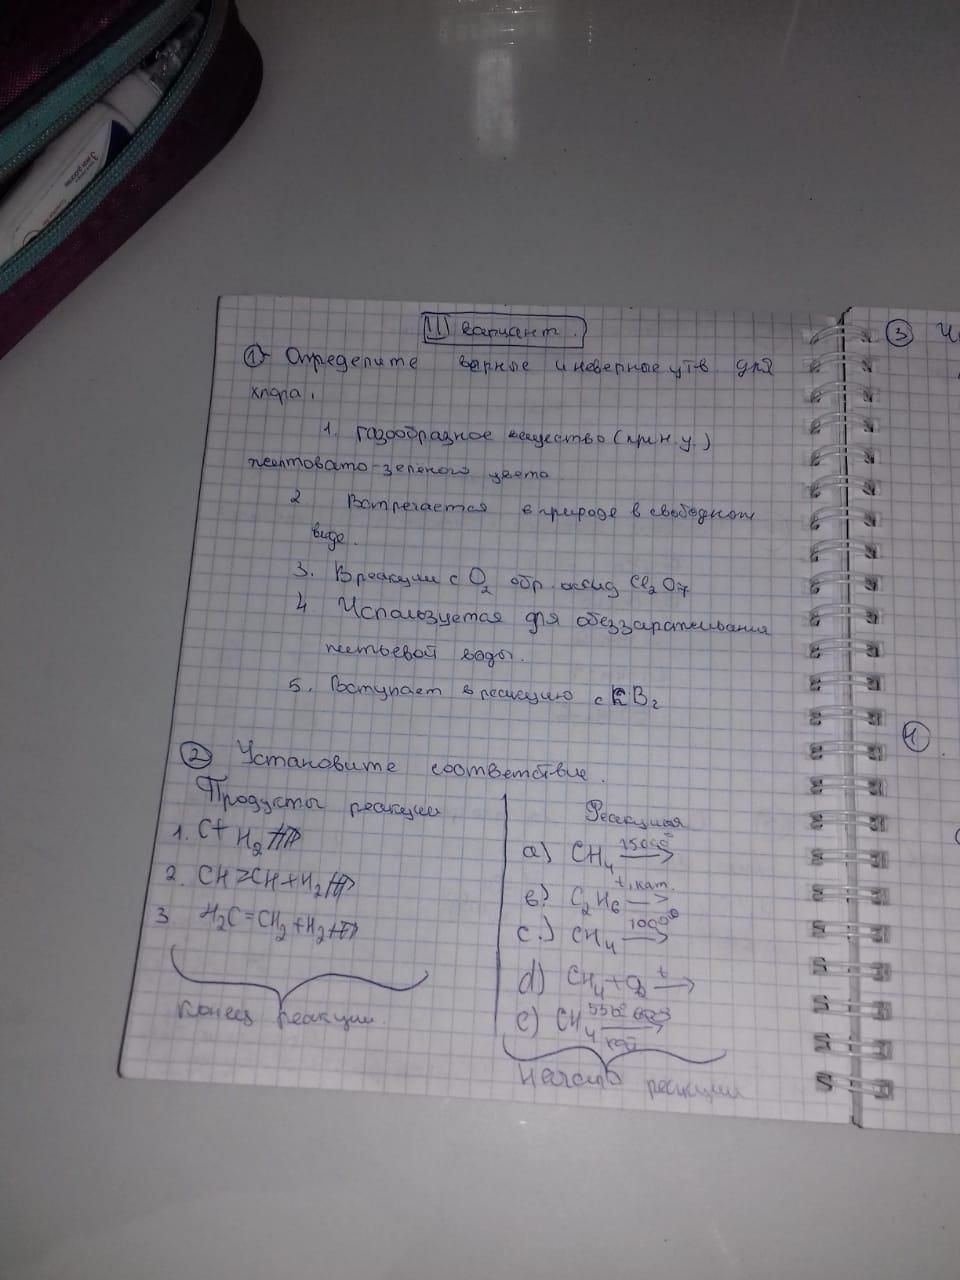 II вариант.
① Определите верные и неверное утв. для
хлора.
1. газообразное вещество (при н.у.)
желтовато-зеленого цвета
2 Встречается в природе в свободном
виде.
3. В реакции с O₂ обр. оксид Cl₂O₇
4 Используется для обеззараживания
питьевой воды.
5. Вступает в реакцию с KBr
② Установите соответствие.
Продукты реакции
1. C + H₂
2. CH≡CH + H₂
3 H₂C=CH₂ + H₂
конец реакции.
Реакция
a) CH₄ 1500° →
в) C₂H₆ t, кат. →
c.) CH₄ 1000° →
d) CH₄ + O₂ t →
e) CH₄ →
Начало реакции
③
④